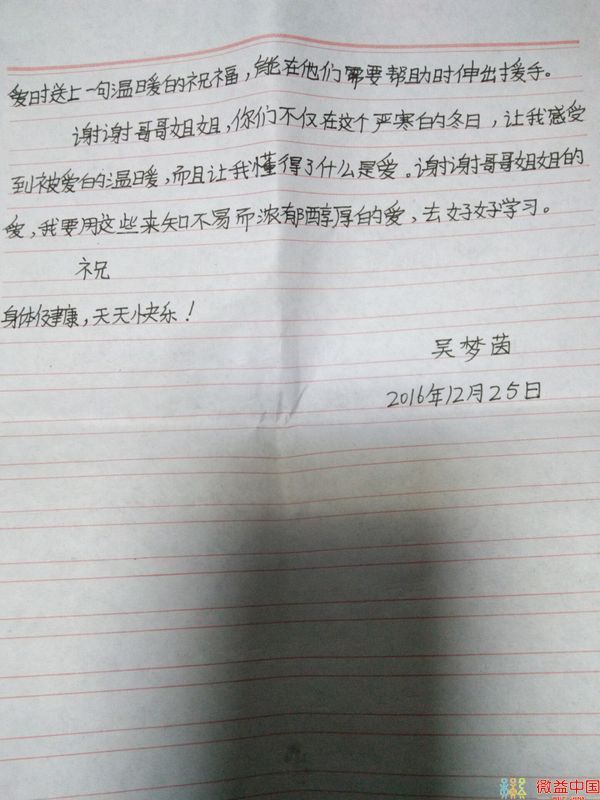 爱时送上一句温暖的祝福，能在他们需要帮助时伸出援手。
谢谢哥哥姐姐，你们不仅在这个严寒的冬日，让我感受
到被爱的温暖，而且让我懂得了什么是爱。谢谢哥哥姐姐的
爱，我要用这些来知不易而浓郁醇厚的爱，去好好学习。
祝
身体健康，天天快乐！
吴梦茵
2016年12月25日
微益中国